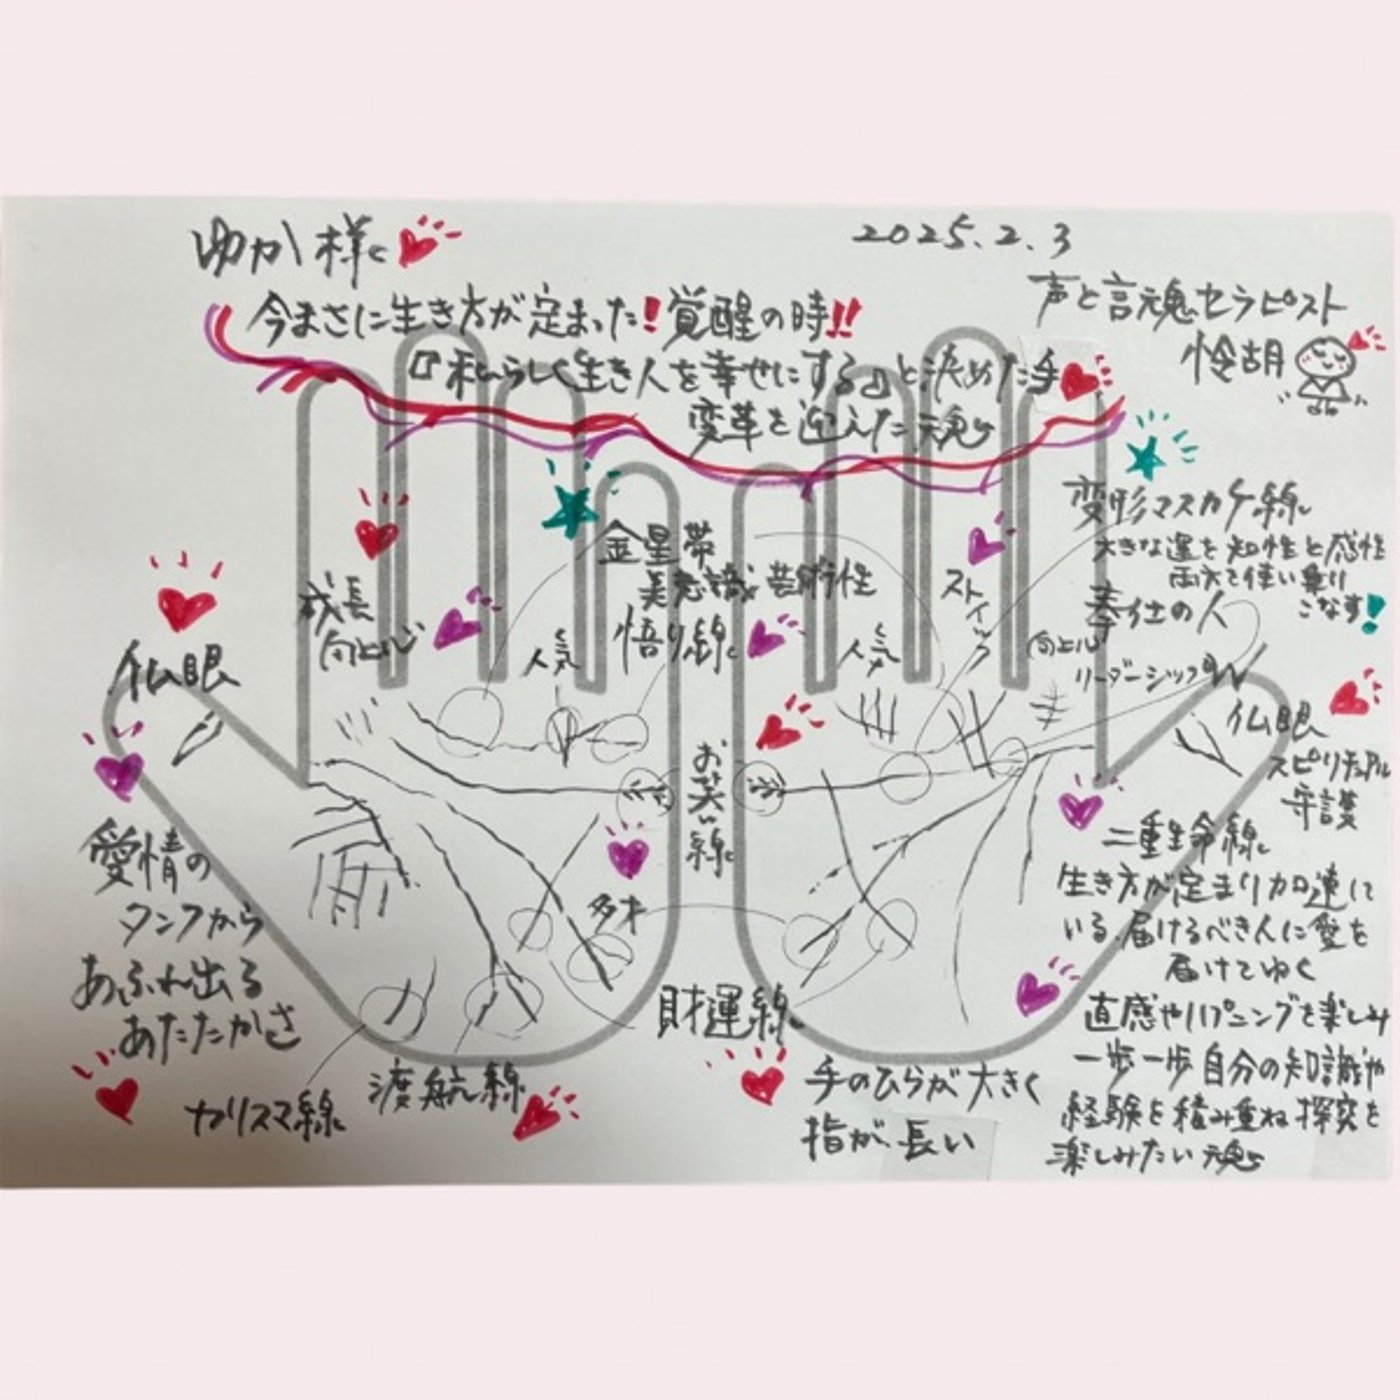 ゆか様
2025.2.3
声と言魂セラピスト
怜胡
今まさに生き方が定まった!覚醒の時!!
『私らしく生き人を幸せにする』と決めた手
変革を迎えた魂
変形マスカケ線
大きな運を知性と感性
両方で使い乗り
こなす!
奉仕の人
金星帯
美意識 芸術性
悟り線
成長
向上心
人気
人気
ストイック
向上心
リーダーシップ
仏眼
仏眼
スピリチュアル
守護
お笑い線
多才
二重生命線
生き方が定まり加速して
いる。届けるべき人に愛を
届けてゆく
直感やハプニングを楽しみ
一歩一歩自分の知識や
経験を積み重ね探究を
楽しみたい魂
愛情の
タンクから
あふれ出る
あたたかさ
財運線
カリスマ線
渡航線
手のひらが大きく
指が長い